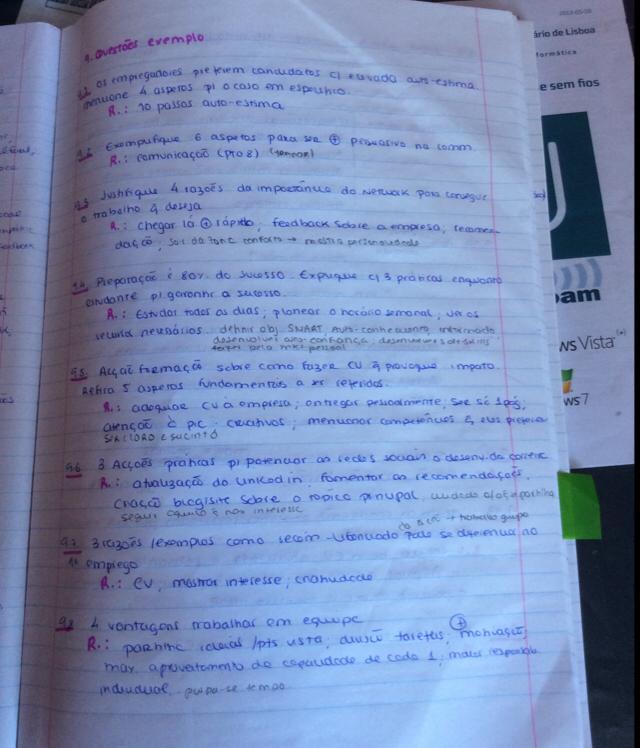 9. Questões exemplo
9.1 Os empregadores preferem candidatos c/ elevada auto-estima.
mencione 4 aspetos p/ o caso em específico.
R.: 10 passos auto-estima
Exemplifique 6 aspetos para ser ⊕ persuasivo na comm.
R.: comunicação (pto 8)
9.3 Justifique 4 razões da importância do Network para conseguir
o trabalho q deseja
R.: chegar lá ⊕ rápido; feedback sobre a empresa; recomen
dação; sair da zona conforto → mostra personalidade
9.4 Preparação é 80% do sucesso. Explique c/ 3 práticas enquanto
estudante p/ garantir o sucesso.
R.: Estudar todos os dias; planear o horário semanal; ver os
recursos necessários. definir obj SMART, auto-conhecimento, informado
desenvolver auto-confiança; desenvolver soft skills
mkt pessoal
9.5 Acção formação sobre como fazer CU q provoque impato.
Refira 5 aspetos fundamentais a ser referidos.
R.: adequar CV à empresa; entregar pessoalmente; ser só 1 pág;
atenção à pic; criativos; mencionar competências q eles
SER CLARO e sucinto
9.6 3 Acções práticas p/ potenciar as redes sociais o desenv. da carreira
R.: atualização do linkedin, fomentar as recomendações,
criação blog/site sobre o tópico principal,
seguir aquilo q nos interesse
→ trabalho grupo
9.7 3 razões/exemplos como recém-licenciado pode se diferenciar no
1º emprego
R.: CV, mostrar interesse; criatividade
9.8 4 vantagens trabalhar em equipe
R.: partilhar ideias/pts vista; divisão tarefas; ⊕ motivação;
max. aproveitamento da capacidade de cada 1; mais responsab
individual, poupa-se tempo
ário de Lisboa
formática
e sem fios
am
ws Vista
ws 7